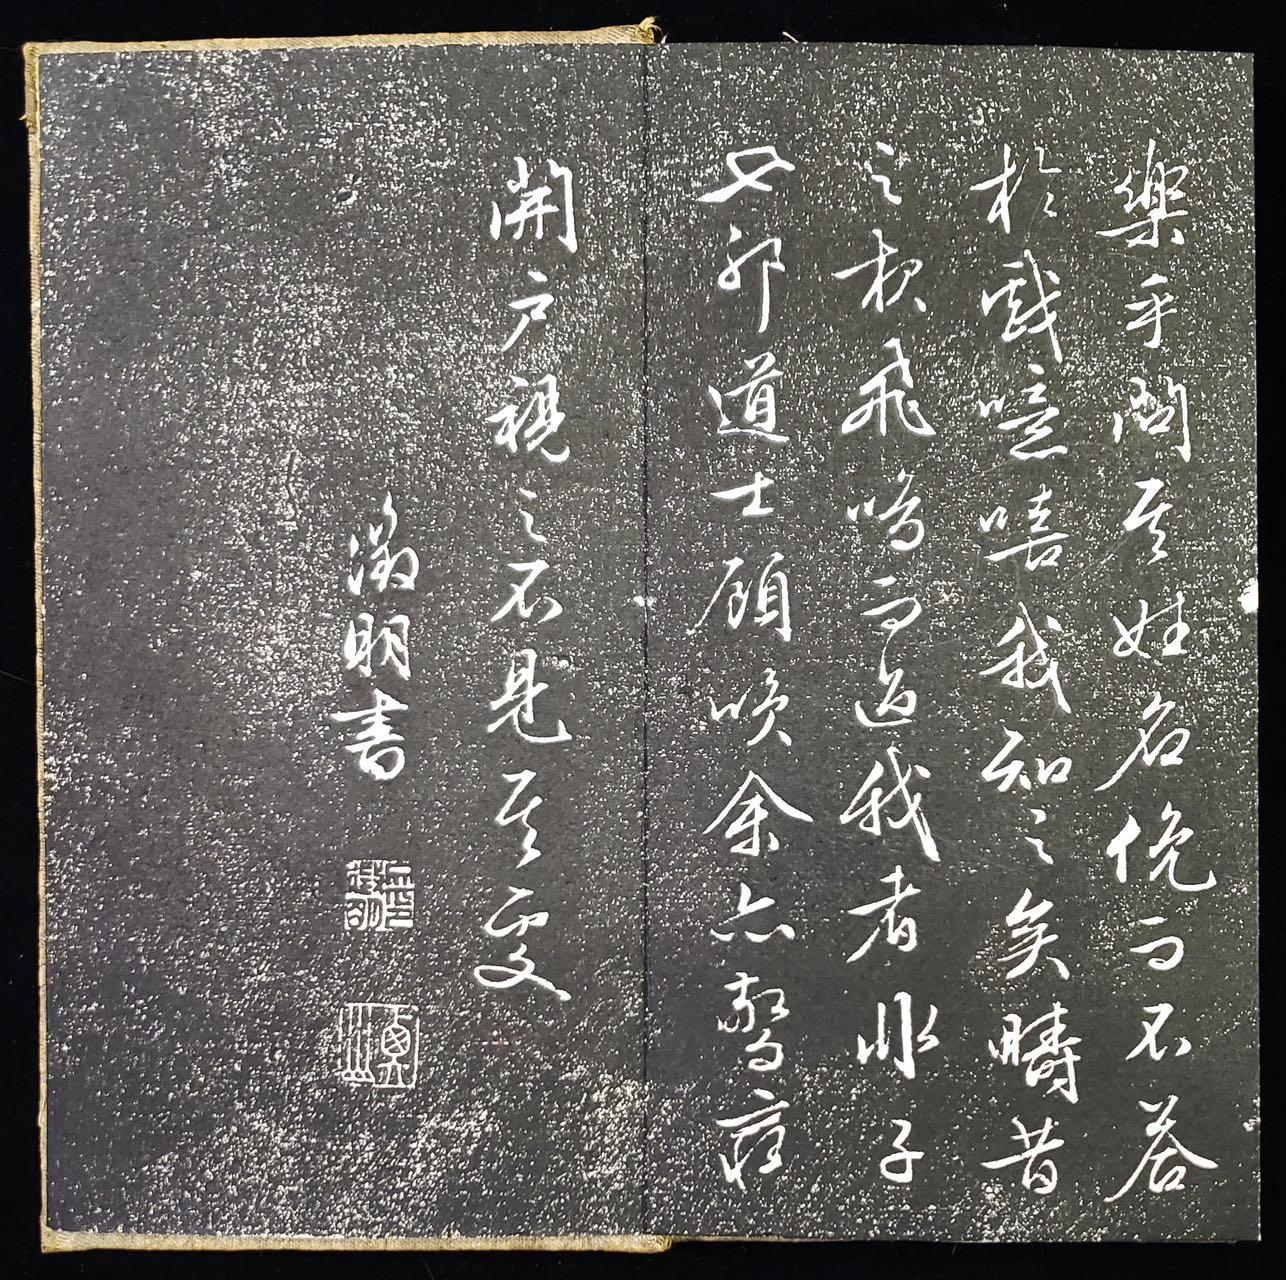 樂乎問其姓名俛而不答
於戲噫嘻我知之矣疇昔
之夜飛鳴而過我者非子
也耶道士顧咲余亦驚寤
開戶視之不見其處
徵明書